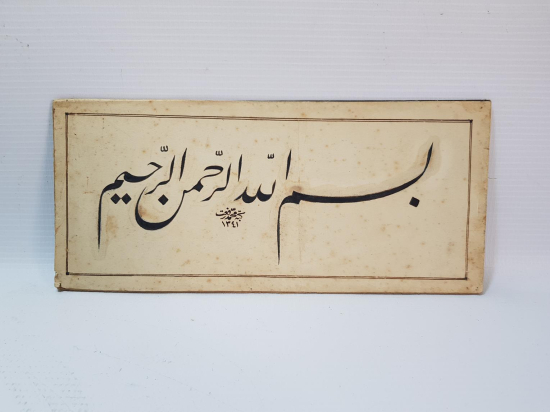 بسم الله الرّحمن الرّحيم
١٣٤١